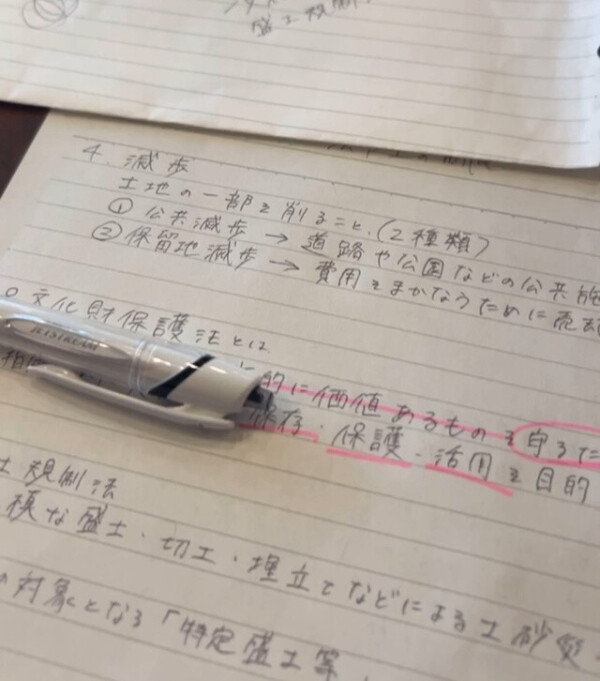 盛土規制
4. 減歩
土地の一部を削ること。(2種類)
① 公共減歩 → 道路や公園などの公共施
② 保留地減歩 → 費用をまかなうために売
○文化財保護法とは
JETSTREAM
的に価値あるものを守るた
保存・保護・活用を目的
土規制法
模な盛土・切土・埋立てなどによる土砂災
対象となる「特定盛土等